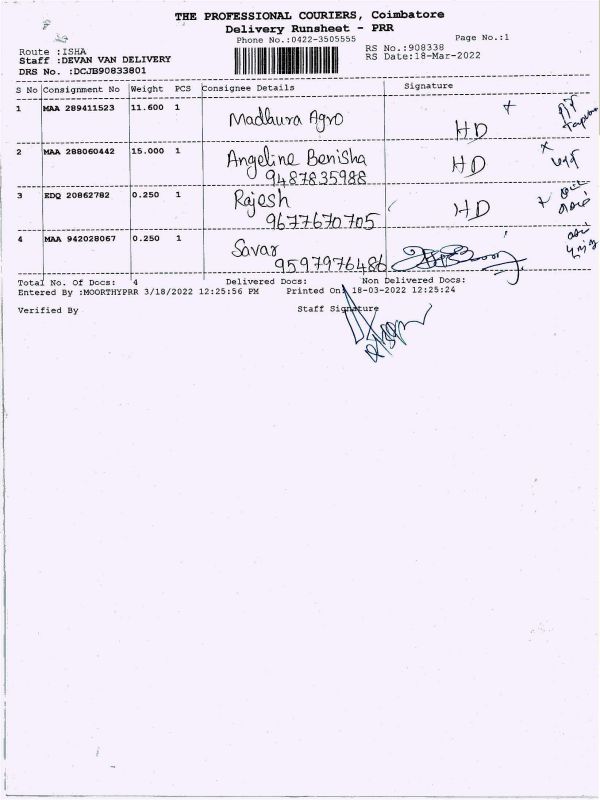 THE PROFESSIONAL COURIERS, Coimbatore
Delivery Runsheet - PRR
Phone No.:0422-3505555
Page No.:1
Route :ISHA
RS No.:908338
Staff :DEVAN VAN DELIVERY
RS Date:18-Mar-2022
DRS No. :DCJB90833801
S No Consignment No Weight PCS Consignee Details Signature
1 MAA 289411523 11.600 1 Madhura Agro HD
2 MAA 288060442 15.000 1 Angeline Benisha HD
9487835988
3 EDQ 20862782 0.250 1 Rajesh HD
9677670705
4 MAA 942028067 0.250 1 Savar
9597976486
Total No. Of Docs: 4 Delivered Docs: Non Delivered Docs:
Entered By :MOORTHYPRR 3/18/2022 12:25:56 PM Printed On: 18-03-2022 12:25:24
Verified By Staff Signature